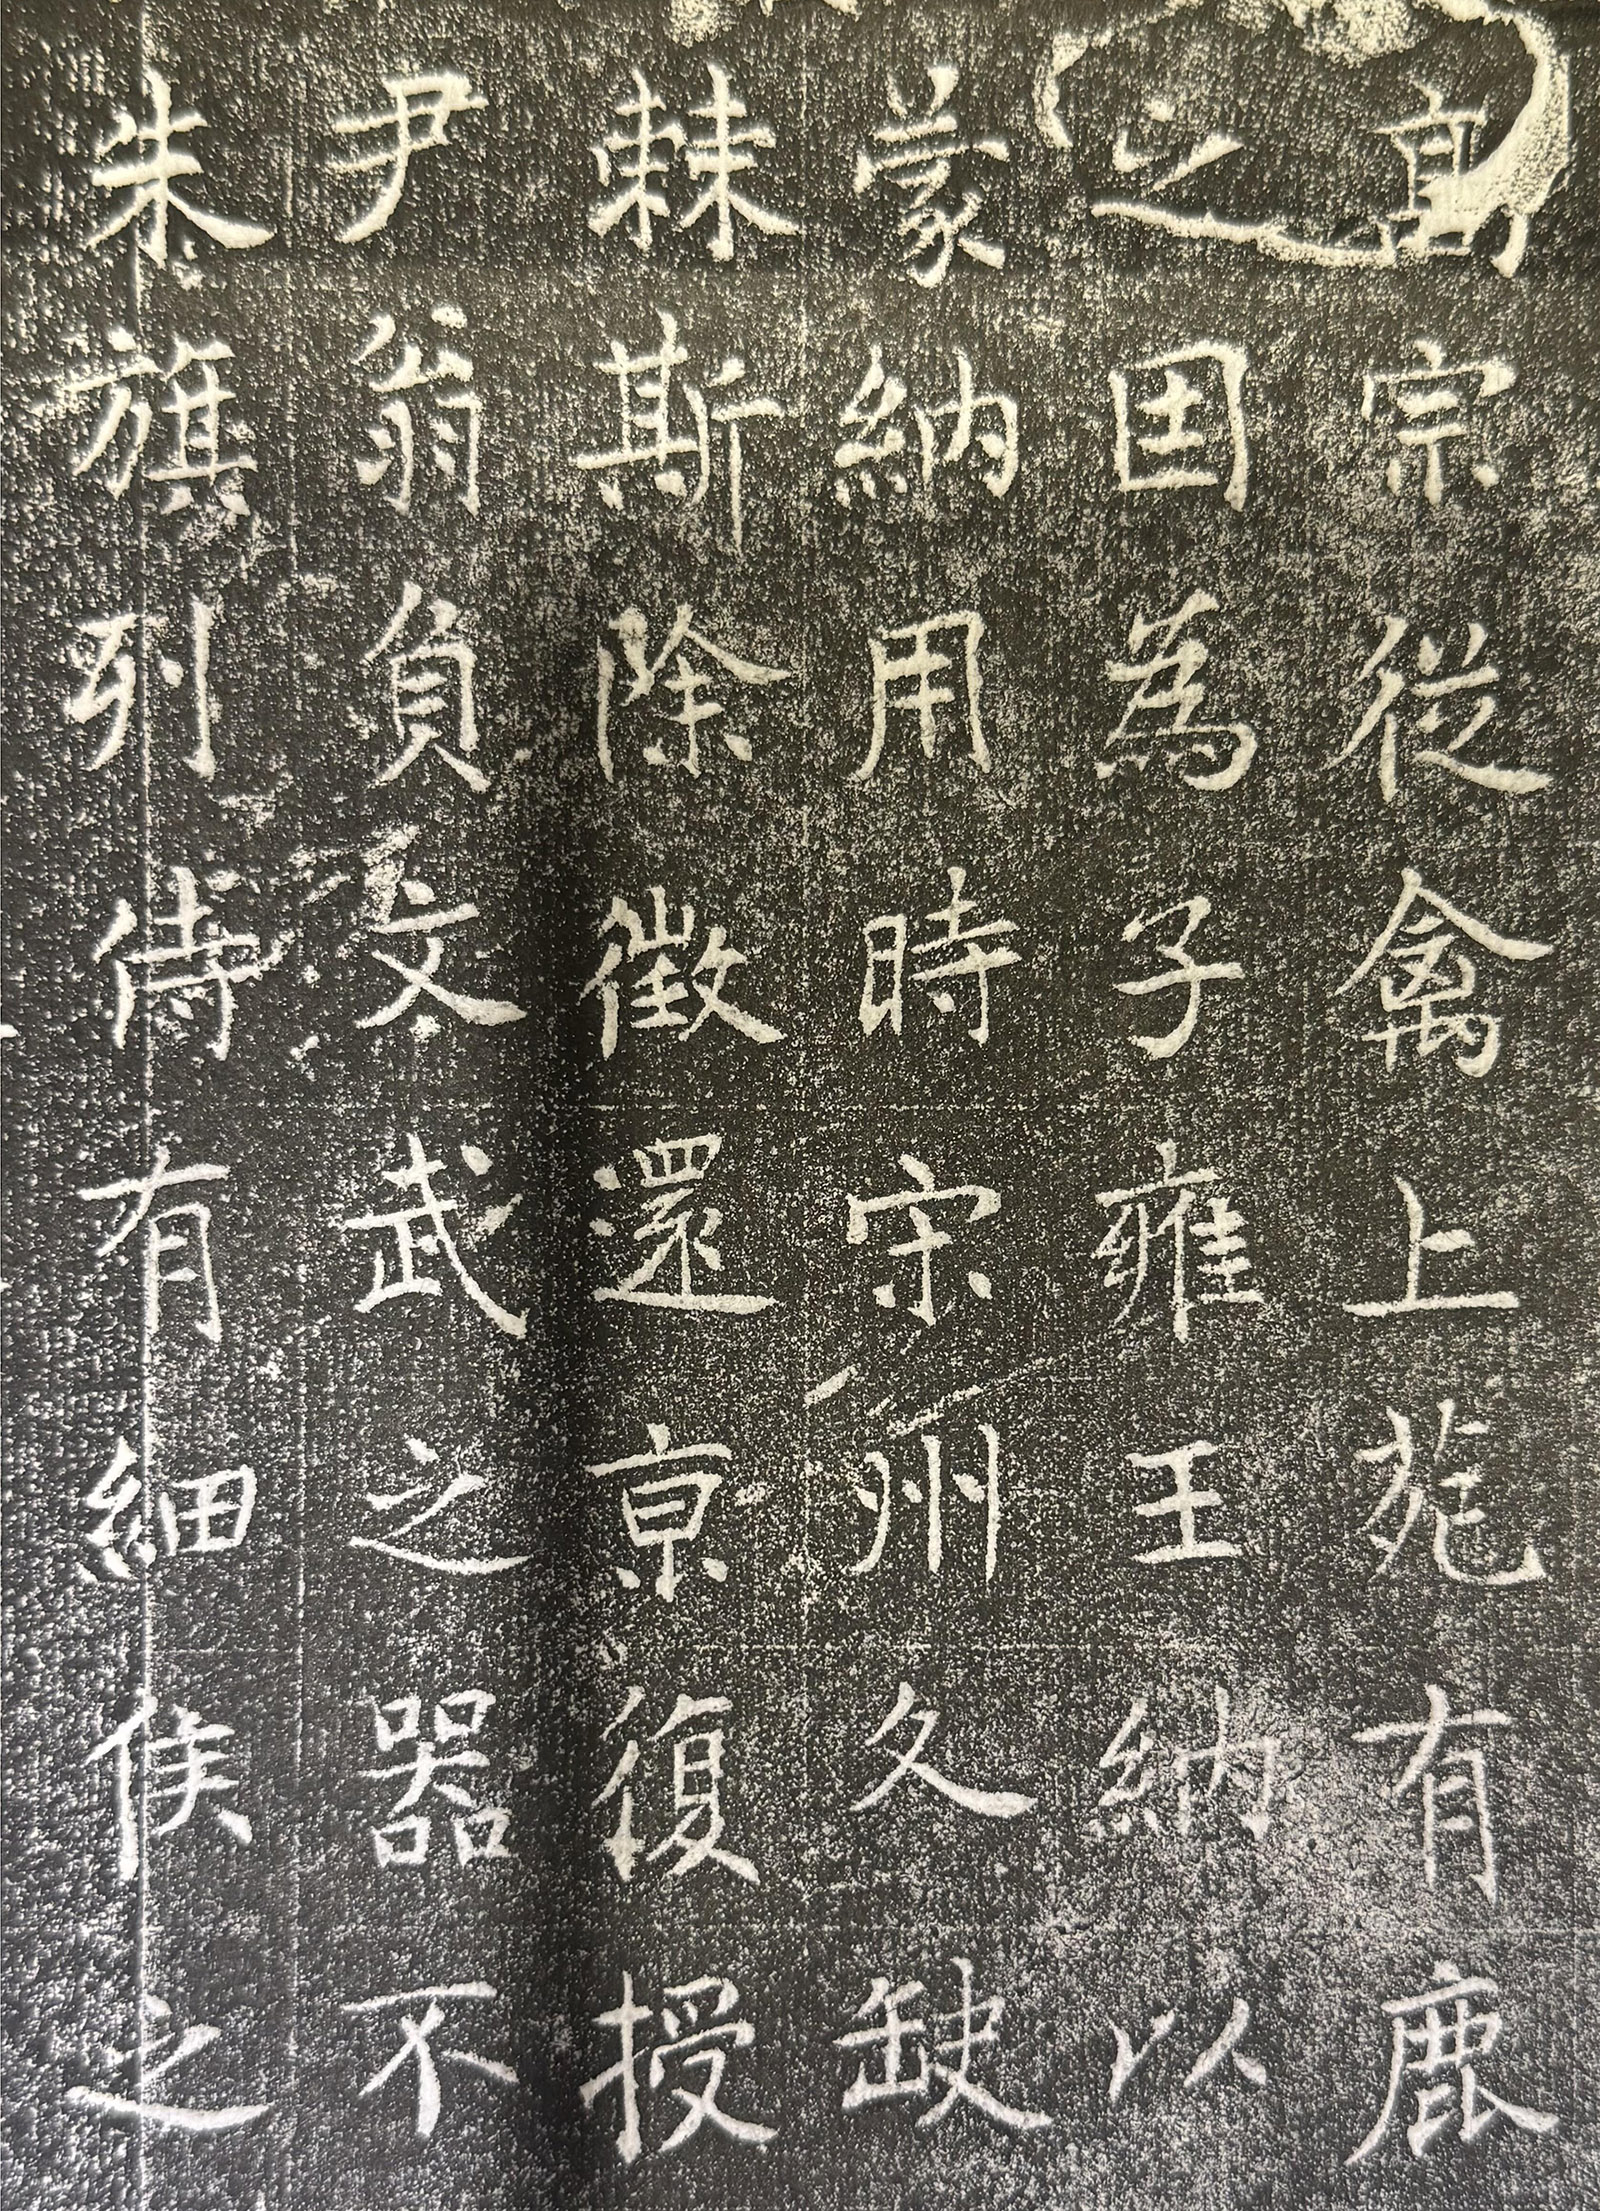 高宗從禽上苑有鹿
之因為子雍王納以
蒙納用時宋州久缺
棘斯除徵還京復授
尹翁負文武之器不
朱旗列侍有細侯之